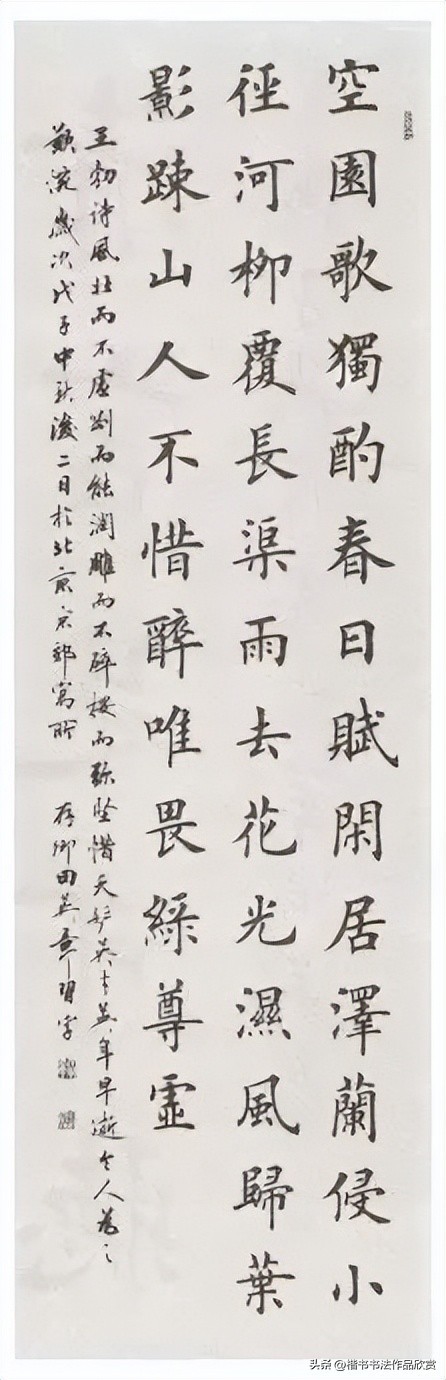 空園歌獨酌春日賦閑居澤蘭侵小
徑河柳覆長渠雨去花光濕風歸葉
影踈山人不惜醉唯畏綠尊虛
王勃詩風壯而不虛剛而能潤雕而不碎按而彌堅惜天妒英才英年早逝令人為之
歲次戊子中秋後二日於北京京郊寓所 田英章習字
头条 @楷书书法作品欣赏